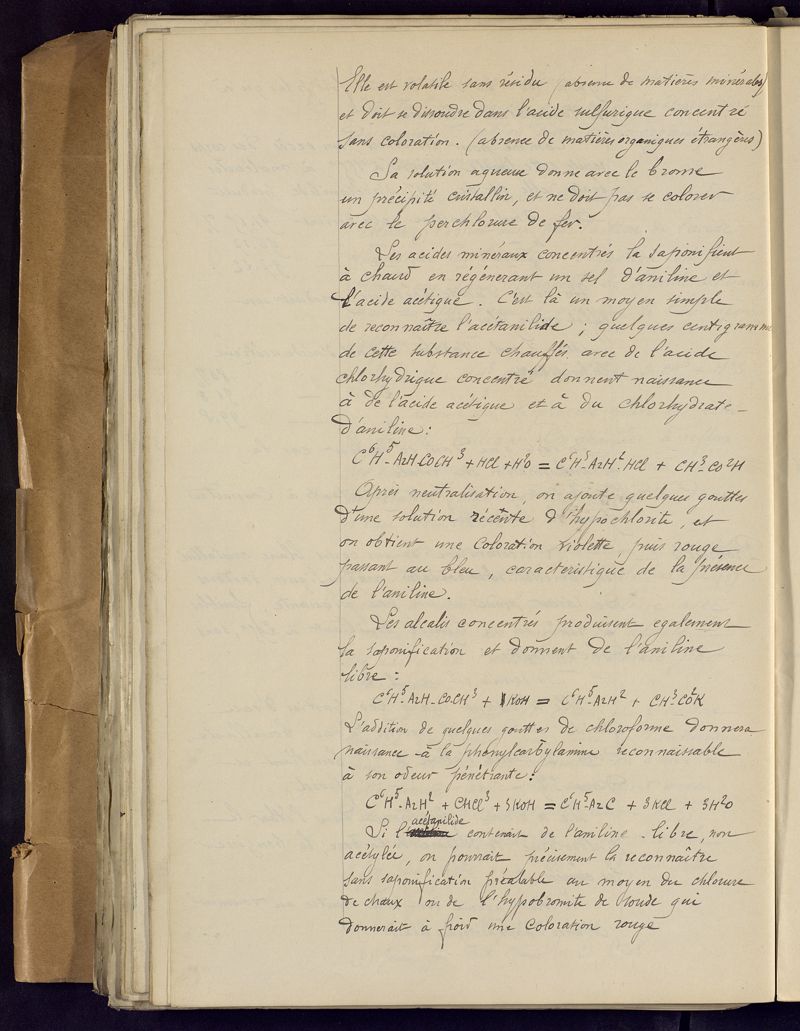 Elle est volatile sans résidu (absence de matières minérales)
et doit se dissoudre dans l'acide sulfurique concentré
sans coloration. (absence de matières organiques étrangères)
Sa solution aqueuse donne avec le brome
un précipité cristallin, et ne doit pas se colorer
avec le perchlorure de fer.
Les acides minéraux concentrés la saponifient
à chaud en régénérant un sel d'aniline et
l'acide acétique. C'est là un moyen simple
de reconnaître l'acétanilide ; quelques centigrammes
de cette substance chauffés avec de l'acide
chlorhydrique concentré donnent naissance
à de l'acide acétique et à du chlorhydrate
d'aniline :
C⁶H⁵-AzH-COCH³ + HCl + H²O = C⁶H⁵-AzH²-HCl + CH³-CO²H
Après neutralisation, on ajoute quelques gouttes
d'une solution récente d'hypochlorite, et
on obtient une coloration violette, puis rouge
passant au bleu, caracteristique de la présence
de l'aniline.
Les alcalis concentrés produisent egalement
la saponification et donnent de l'aniline
libre :
C⁶H⁵-AzH-COCH³ + KOH = C⁶H⁵-AzH² + CH³-CO²K
L'addition de quelques gouttes de chloroforme donnera
naissance à la phénylcarbylamine reconnaissable
à son odeur pénétrante :
C⁶H⁵-AzH² + CHCl³ + 3KOH = C⁶H⁵-AzC + 3KCl + 3H²O
Si l'acétanilide contenait de l'aniline libre, non
acétylée, on pourrait précisement la reconnaître
sans saponification préalable au moyen du chlorure
de chaux ou de l'hypobromite de soude qui
donnerait à froid une coloration rouge